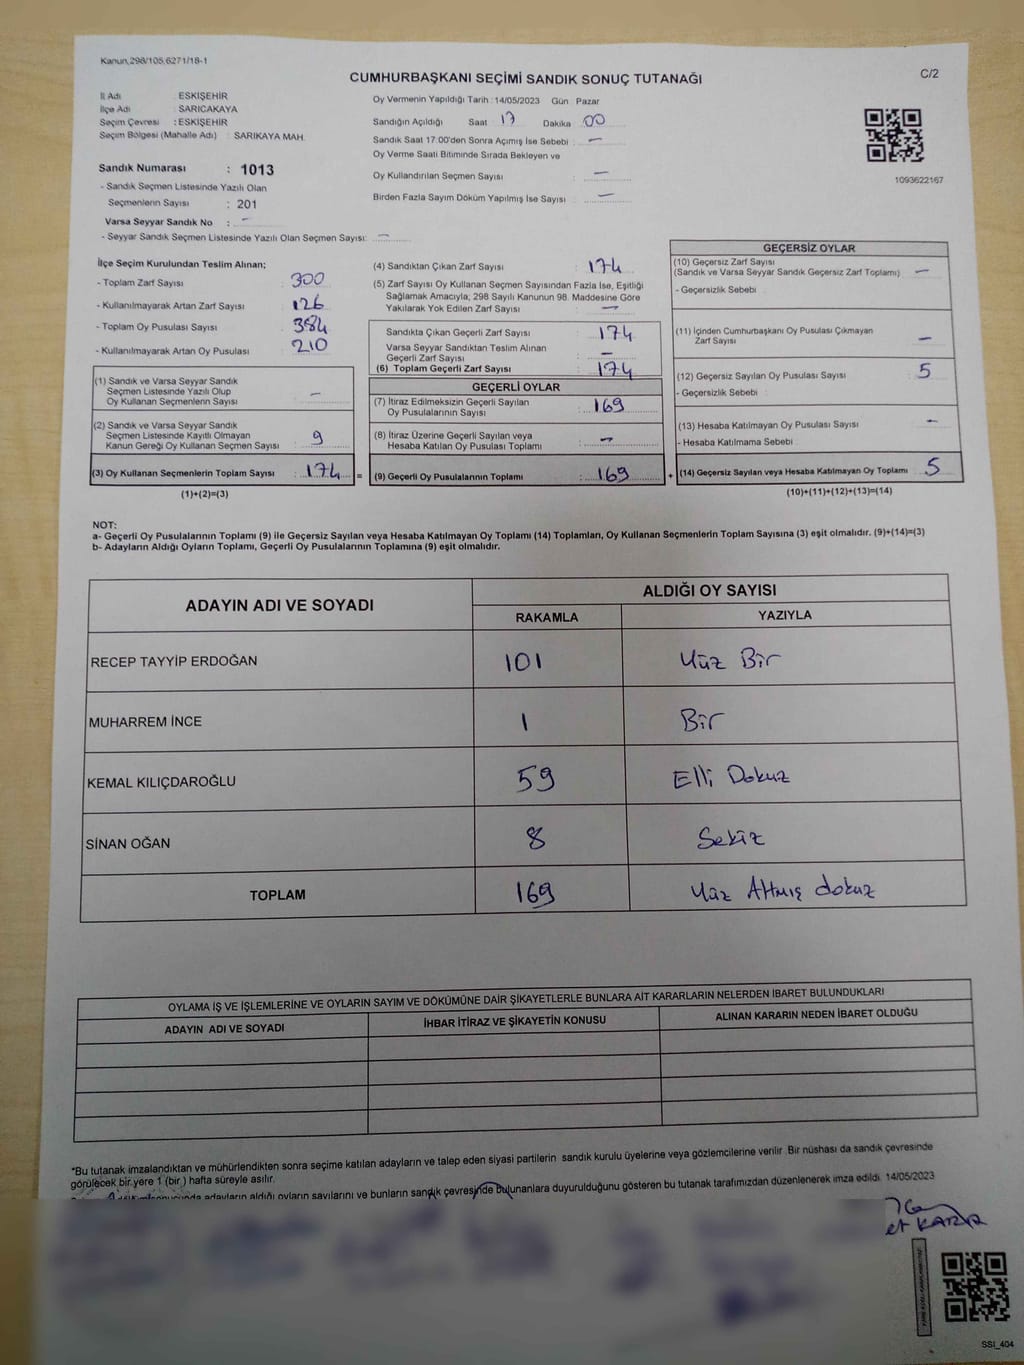 Kanun,298/105,6271/18-1
CUMHURBAŞKANI SEÇİMİ SANDIK SONUÇ TUTANAĞI
C/2
İl Adı : ESKİŞEHİR
İlçe Adı : SARICAKAYA
Seçim Çevresi : ESKİŞEHİR
Seçim Bölgesi (Mahalle Adı) : SARIKAYA MAH.
Sandık Numarası : 1013
- Sandık Seçmen Listesinde Yazılı Olan
Seçmenlerin Sayısı : 201
Varsa Seyyar Sandık No : -
- Seyyar Sandık Seçmen Listesinde Yazılı Olan Seçmen Sayısı: -
Oy Vermenin Yapıldığı Tarih : 14/05/2023 Gün Pazar
Sandığın Açıldığı Saat 17 Dakika 00
Sandık Saat 17:00'den Sonra Açımış İse Sebebi : -
Oy Verme Saati Bitiminde Sırada Bekleyen ve
Oy Kullandırılan Seçmen Sayısı : -
Birden Fazla Sayım Döküm Yapılmış İse Sayısı : -
1093622167
İlçe Seçim Kurulundan Teslim Alınan;
- Toplam Zarf Sayısı : 300
- Kullanılmayarak Artan Zarf Sayısı : 126
- Toplam Oy Pusulası Sayısı : 384
- Kullanılmayarak Artan Oy Pusulası : 210
(1) Sandık ve Varsa Seyyar Sandık
Seçmen Listesinde Yazılı Olup
Oy Kullanan Seçmenlerin Sayısı : -
(2) Sandık ve Varsa Seyyar Sandık
Seçmen Listesinde Kayıtlı Olmayan
Kanun Gereği Oy Kullanan Seçmen Sayısı : 9
(3) Oy Kullanan Seçmenlerin Toplam Sayısı : 174 =
(1)+(2)=(3)
(4) Sandıktan Çıkan Zarf Sayısı : 174
(5) Zarf Sayısı Oy Kullanan Seçmen Sayısından Fazla İse, Eşitliği
Sağlamak Amacıyla; 298 Sayılı Kanunun 98. Maddesine Göre
Yakılarak Yok Edilen Zarf Sayısı : -
Sandıkta Çıkan Geçerli Zarf Sayısı : 174
Varsa Seyyar Sandıktan Teslim Alınan
Geçerli Zarf Sayısı : -
(6) Toplam Geçerli Zarf Sayısı : 174
GEÇERLİ OYLAR
(7) İtiraz Edilmeksizin Geçerli Sayılan
Oy Pusulalarının Sayısı : 169
(8) İtiraz Üzerine Geçerli Sayılan veya
Hesaba Katılan Oy Pusulası Toplamı : -
(9) Geçerli Oy Pusulalarının Toplamı : 169 +
GEÇERSİZ OYLAR
(10) Geçersiz Zarf Sayısı
(Sandık ve Varsa Seyyar Sandık Geçersiz Zarf Toplamı) : -
- Geçersizlik Sebebi :
(11) İçinden Cumhurbaşkanı Oy Pusulası Çıkmayan
Zarf Sayısı : -
(12) Geçersiz Sayılan Oy Pusulası Sayısı : 5
- Geçersizlik Sebebi :
(13) Hesaba Katılmayan Oy Pusulası Sayısı : -
- Hesaba Katılmama Sebebi :
(14) Geçersiz Sayılan veya Hesaba Katılmayan Oy Toplamı : 5
(10)+(11)+(12)+(13)=(14)
NOT:
a- Geçerli Oy Pusulalarının Toplamı (9) ile Geçersiz Sayılan veya Hesaba Katılmayan Oy Toplamı (14) Toplamları, Oy Kullanan Seçmenlerin Toplam Sayısına (3) eşit olmalıdır. (9)+(14)=(3)
b- Adayların Aldığı Oyların Toplamı, Geçerli Oy Pusulalarının Toplamına (9) eşit olmalıdır.
ADAYIN ADI VE SOYADI ALDIĞI OY SAYISI
RAKAMLA YAZIYLA
RECEP TAYYİP ERDOĞAN 101 Yüz Bir
MUHARREM İNCE 1 Bir
KEMAL KILIÇDAROĞLU 59 Elli Dokuz
SİNAN OĞAN 8 Sekiz
TOPLAM 169 Yüz Altmış dokuz
OYLAMA İŞ VE İŞLEMLERİNE VE OYLARIN SAYIM VE DÖKÜMÜNE DAİR ŞİKAYETLERLE BUNLARA AİT KARARLARIN NELERDEN İBARET BULUNDUKLARI
ADAYIN ADI VE SOYADI İHBAR İTİRAZ VE ŞİKAYETİN KONUSU ALINAN KARARIN NEDEN İBARET OLDUĞU
*Bu tutanak imzalandıktan ve mühürlendikten sonra seçime katılan adayların ve talep eden siyasi partilerin sandık kurulu üyelerine veya gözlemcilerine verilir. Bir nüshası da sandık çevresinde
görülecek bir yere 1 (bir ) hafta süreyle asılır.
adayların aldığı oyların sayılarını ve bunların sandık çevresinde bulunanlara duyurulduğunu gösteren bu tutanak tarafımızdan düzenlenerek imza edildi. 14/05/2023
SSI_404